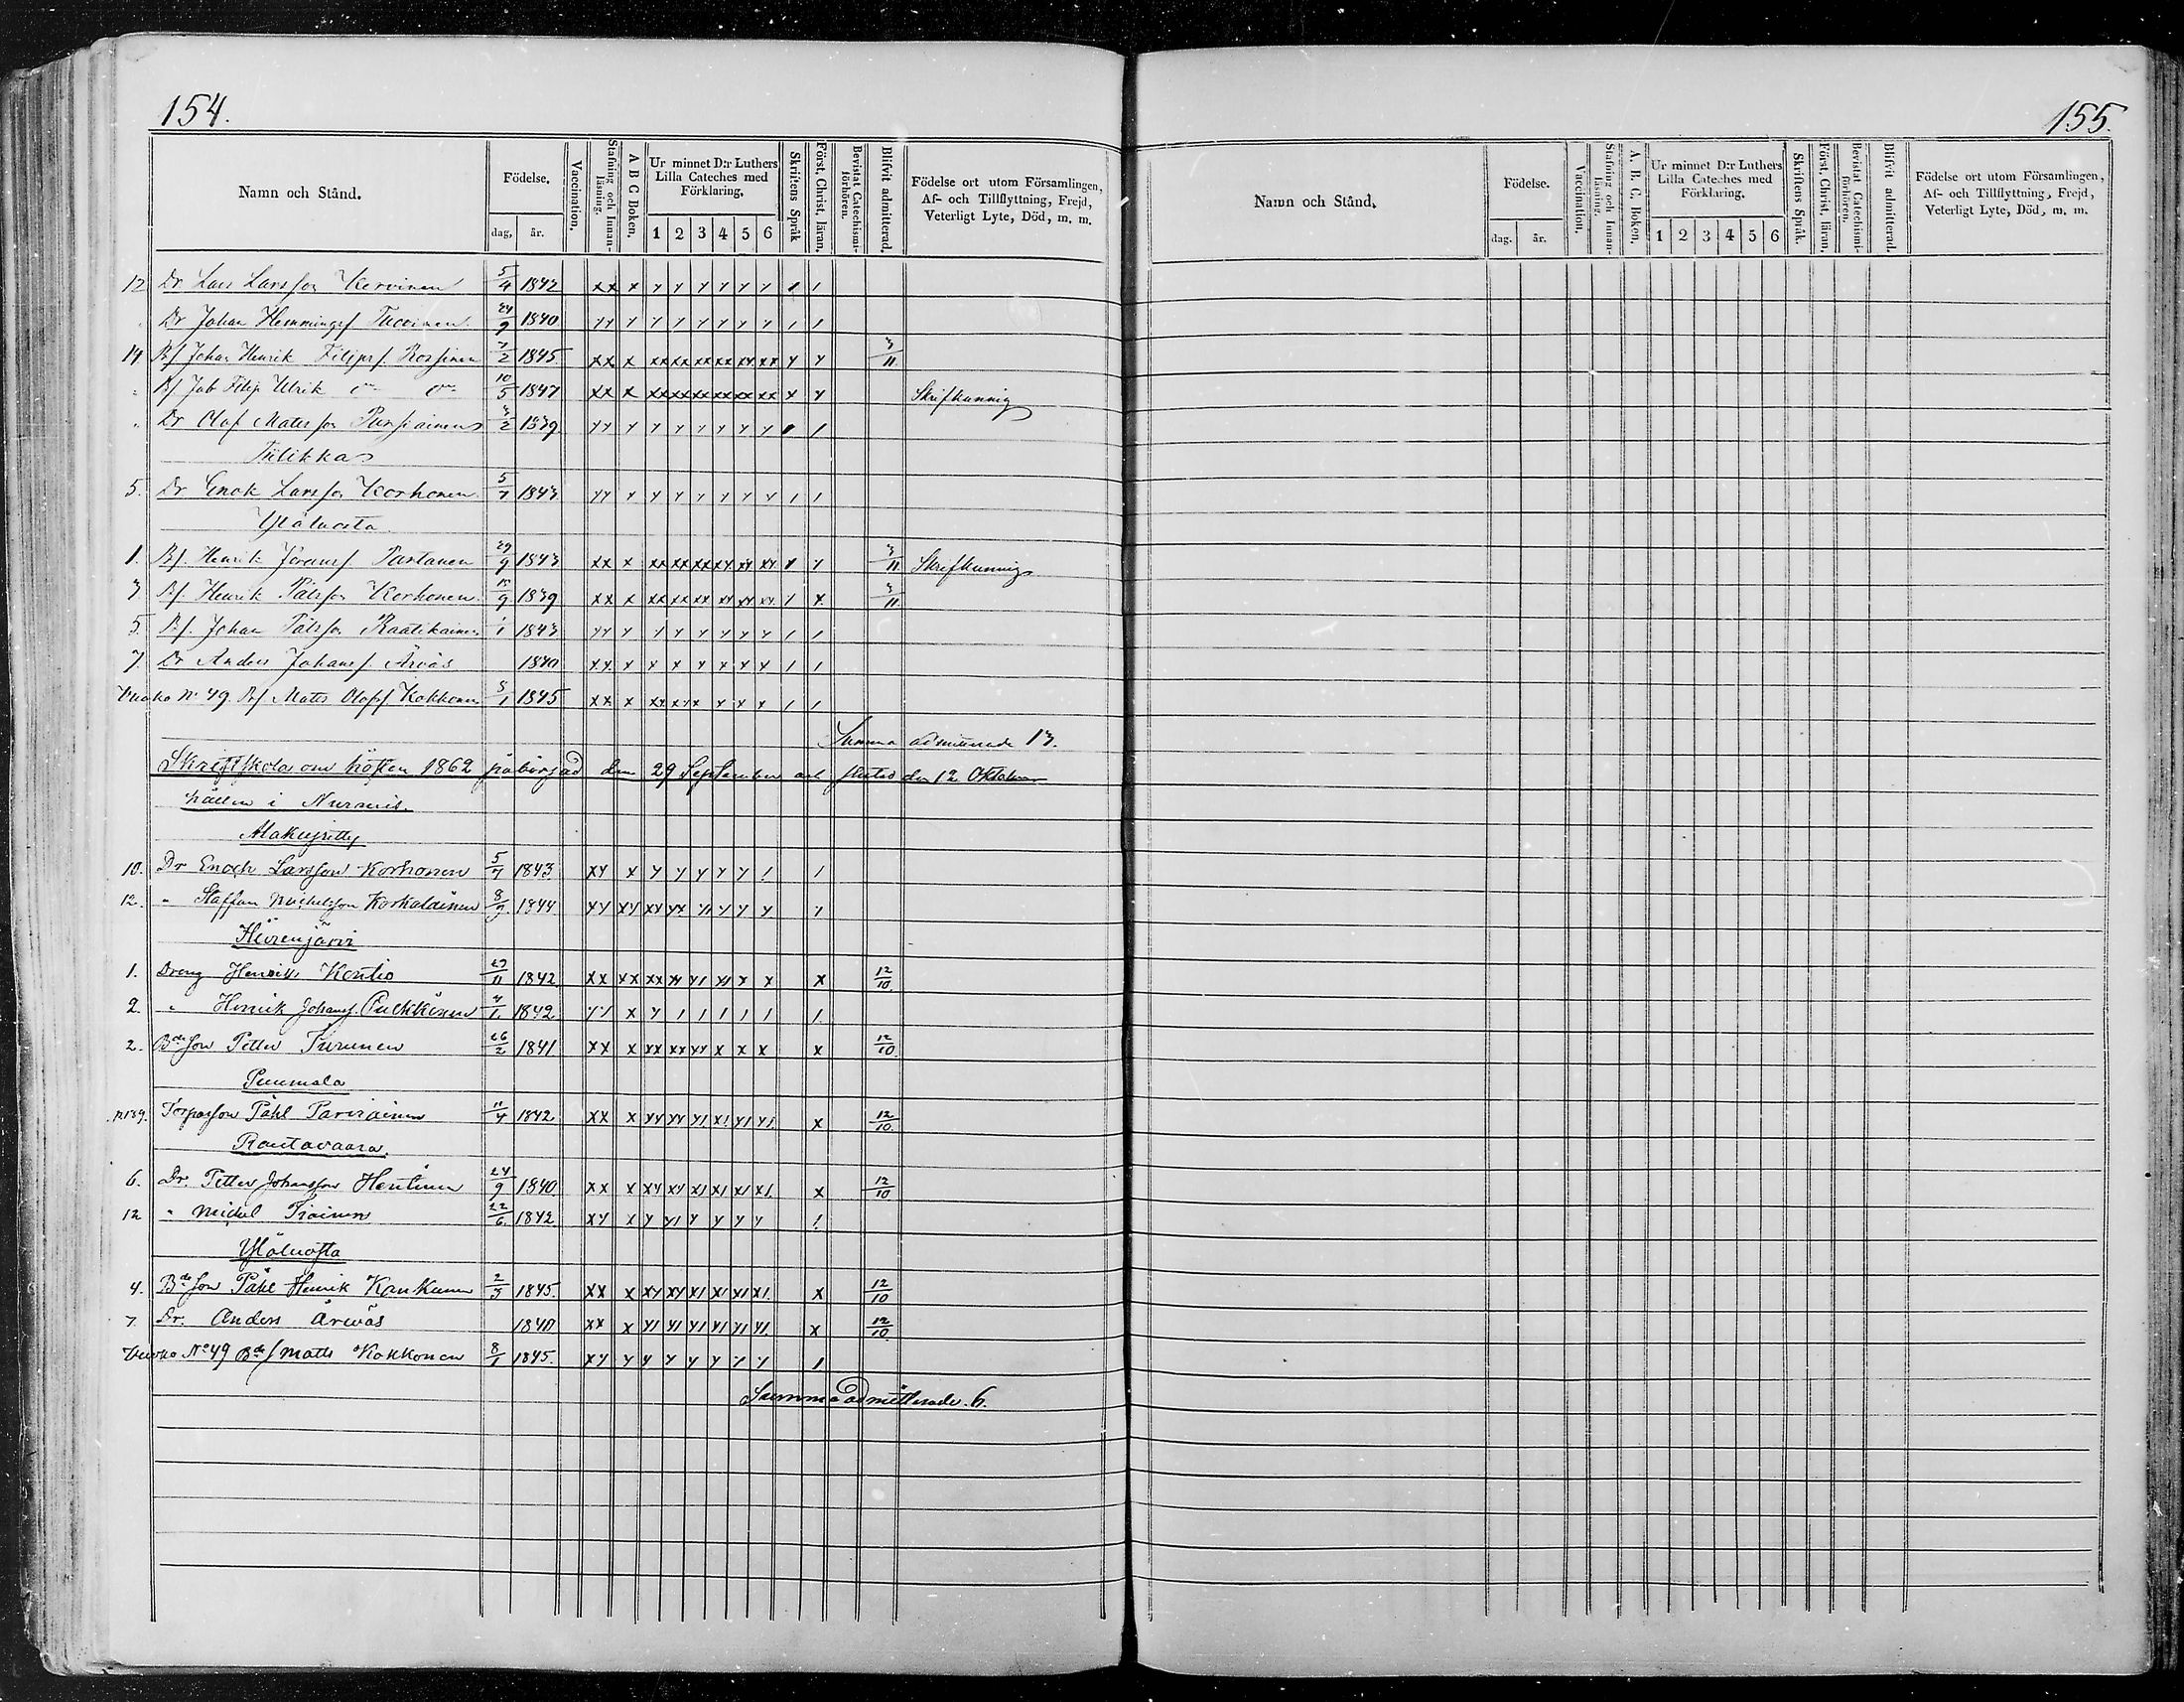 154.
Namn och Stånd.
Födelse.
dag. år.
Vaccination.
Stafning och Innanläsning.
A B C Boken.
Ur minnet D:r Luthers Lilla Cateches med Förklaring.
1 2 3 4 5 6
Skriftens Språk
Först. Christ. läran.
Bevistat Catechismi-förhören.
Blifvit admitterad.
Födelse ort utom Församlingen,
Af- och Tillflyttning, Frejd,
Veterligt Lyte, Död, m. m.
12 Dr Lars Larsson Kervinen 5/4 1842 xx x y y y y y y / /
Dr Johan Hemmingss 24/9 1840 yy y y y y y y y / /
14 Bs Johan Henrik Filipss Rossinen 7/2 1845 xx x xx xx xx xx xx xx y y 3/11
Bs Jab Filip Ulrik do do 10/5 1847 xx x xx xx xx xx xx xx x y Skrifkunnig
Dr Olof Matsson Pursiainen 3/2 1839 yy y y y y y y y / /
Tiilikka
5. Dr Enok Larsson Korhonen 5/7 1843 yy y y y y y y y / /
Yläluosta
1. Bs. Henrik Göranss Partanen 29/9 1843 xx x xx xx xx xy xy xy y y 3/11 Skrifkunnig
3. Bs. Henrik Pålsson Korhonen 1839 xx x xx xx xx xy xy xy y x 3/11
5. Bs. Johan Pålsson Raatikainen 1/1 1843 yy y y y y y y y / /
7. Dr Anders Johanss. Arvås 1840 xx x x x y x x x / /
Vuoko No 49. Bs Mats Olofs Kokkonen 8/1 1845 xx x xx xx x x x / /
Summa admitterade 13.
Skriftskola om hösten 1862 påbörjad den 29 September och slutad den 12 Oktober
hållen i Nurmis.
Alakeyritty
10. Dr Enoch Larsson Korhonen 5/7 1843 xy x y y y y y / /
12. " Staffan Michelsson Karhalainen 8/9 1844 yy xy xy yx y/ y y y y
Hiirenjärvi
1. Dreng Henrik Kontio 29/11 1842 xx xx xx xy y/ x/ x x x 12/10
2. " Henrik Johanss. Pulkkinen 4/1 1842 y/ x y / / / / / /
2. Bde son Petter Turunen 26/2 1841 xx x xx xx yy x x x x 12/10
Puumala
No 39. Torparson Påhl Parviainen 11/4 1842 xx x xy xy y/ x/ y/ y/ x 12/10
Rautavaara.
6. Dr. Petter Johansson Hentinen 24/9 1840 xx x xy xy x/ x/ x/ x/ x 12/10
12 " Michel Piainen 22/6 1842 xy x y y/ y y y y /
Yläluosta
4. Bde son Påhl Henrik Kankunen 2/3 1845. xx x xy xy x/ x/ x/ x/ x 12/10
7. Dr. Anders Arwås 1840 xx x y/ y/ y/ y/ y/ y/ x 12/10
Vuoko No 49 Bde s Matts Kokkonen 8/1 1845. xy y y y y y y y /
Summa admitterade. 6.
155.
Namn och Stånd.
Födelse.
dag. år.
Vaccination.
Stafning och Innanläsning.
A. B. C. Boken.
Ur minnet D:r Luthers Lilla Cateches med Förklaring.
1 2 3 4 5 6
Skriftens Språk.
Först. Christ. läran.
Bevistat Catechismi förhören.
Blifvit admitterad.
Födelse ort utom Församlingen,
Af- och Tillflyttning, Frejd,
Veterligt Lyte, Död, m. m.